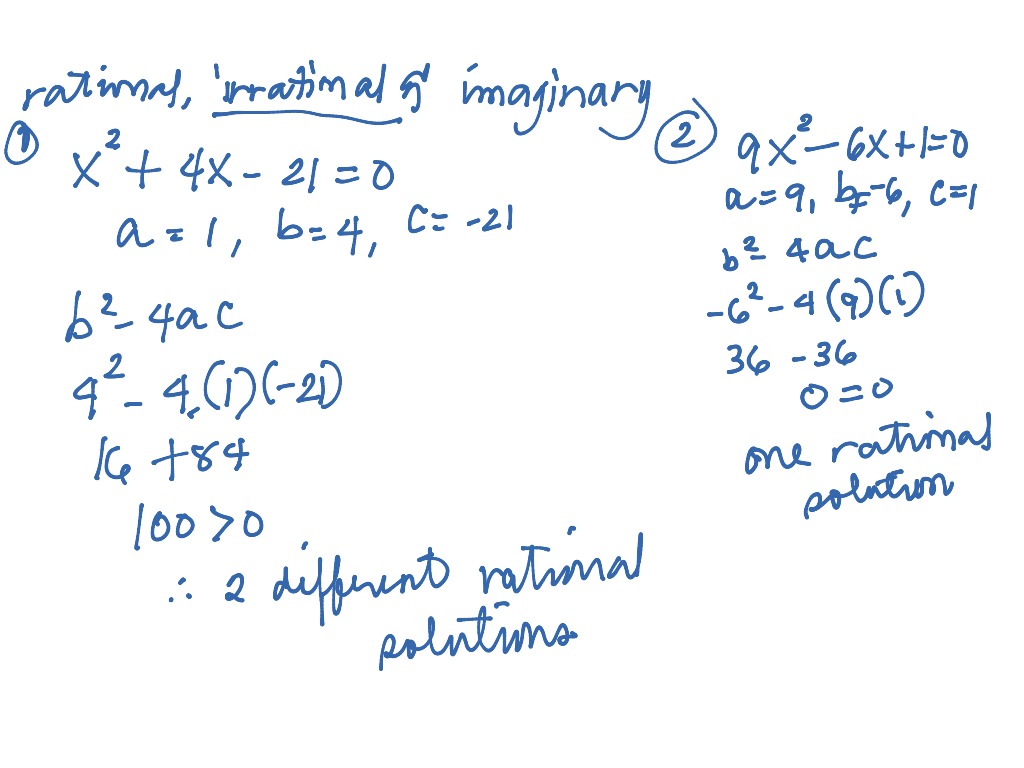 rational, irrational & imaginary
①
x² + 4x - 21 = 0
a = 1, b = 4, c = -21
b² - 4ac
4² - 4(1)(-21)
16 + 84
100 > 0
∴ 2 different rational
solutions
②
9x² - 6x + 1 = 0
a = 9, b = -6, c = 1
b² - 4ac
-6² - 4(9)(1)
36 - 36
0 = 0
one rational
solution